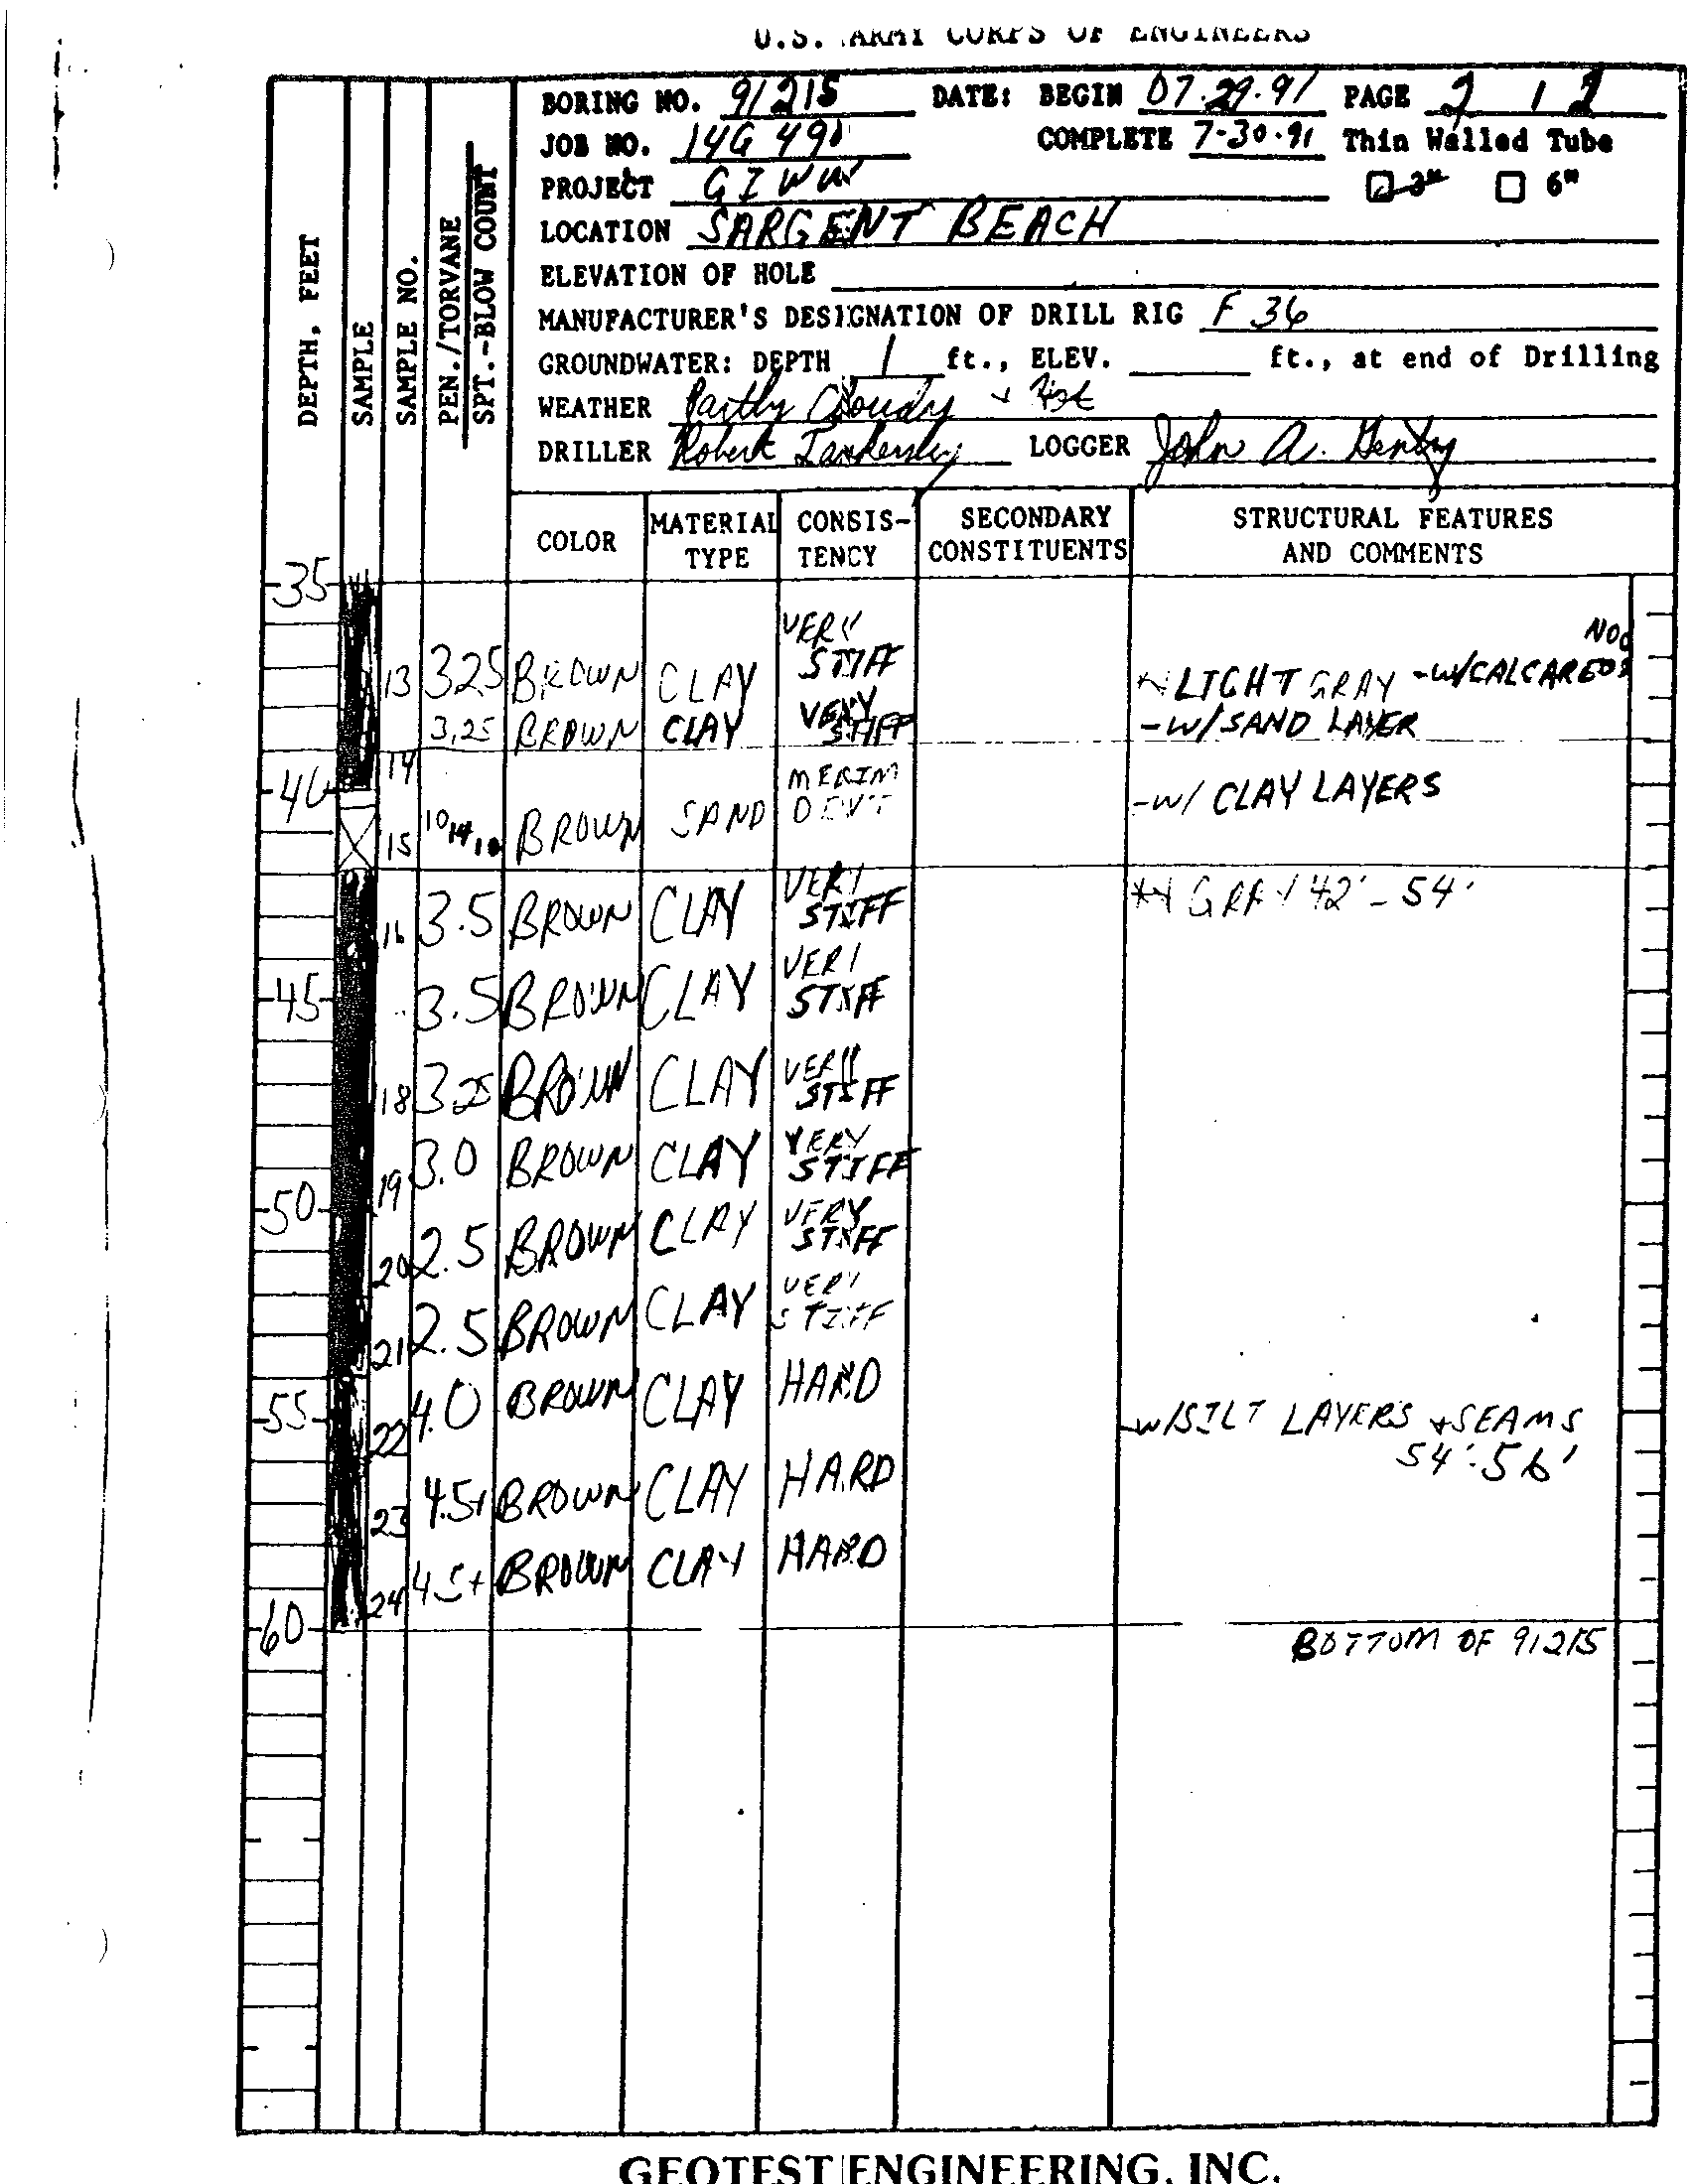 U.S. ARMY CORPS OF ENGINEERS
BORING NO. 91215 DATE: BEGIN 07.29.91 PAGE 2 / 2
JOB NO. 14G 490 COMPLETE 7-30-91 Thin Walled Tube
PROJECT GIWW 3" 6"
LOCATION SARGENT BEACH
ELEVATION OF HOLE
MANUFACTURER'S DESIGNATION OF DRILL RIG F 36
GROUNDWATER: DEPTH 1 ft., ELEV. ft., at end of Drilling
WEATHER Partly Cloudy + Hot
DRILLER Robert Tankersley LOGGER John A.
DEPTH, FEET
SAMPLE
SAMPLE NO.
PEN./TORVANE
SPT.-BLOW COUNT
COLOR MATERIAL TYPE CONSIS-TENCY SECONDARY CONSTITUENTS STRUCTURAL FEATURES AND COMMENTS
35
13 3.25 BROWN CLAY VERY STIFF LIGHT GRAY -W/CALCAREOUS NOD
3.25 BROWN CLAY VERY STIFF -W/SAND LAYER
14
40
15 10 14 BROWN SAND -W/ CLAY LAYERS
16 3.5 BROWN CLAY VERY STIFF GRAY 42'-54'
45 3.5 BROWN CLAY VERY STIFF
18 3.25 BROWN CLAY VERY STIFF
19 3.0 BROWN CLAY VERY STIFF
50
20 2.5 BROWN CLAY VERY STIFF
21 2.5 BROWN CLAY VERY STIFF
55 22 4.0 BROWN CLAY HARD -W/SILT LAYERS + SEAMS
54'-56'
23 4.5+ BROWN CLAY HARD
24 4.5+ BROWN CLAY HARD
60
BOTTOM OF 91215
GEOTEST ENGINEERING, INC.